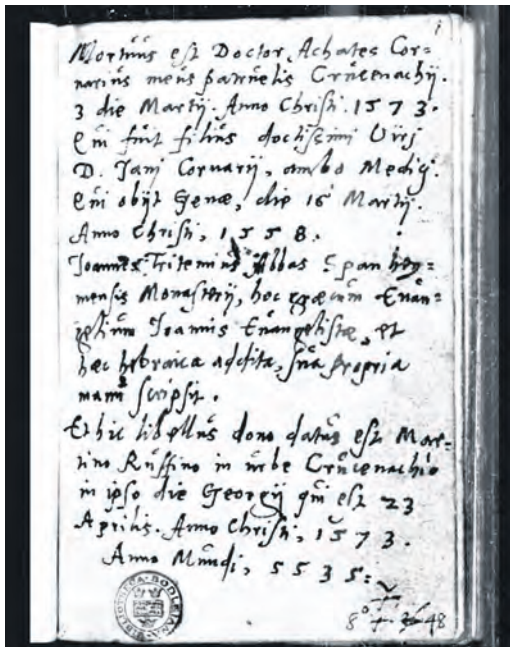 1
Mortuus est Doctor, Achates Cor=
narius meus patruelis Crucenachij.
3 die Martij. Anno Christi. 1573.
Qui fuit filius doctissimi Virj
D. Janj Cornarij, ambo Medicj.
Qui obijt Genæ, die 16 Martij.
Anno Christi, 1558.
Joannes Tritemius Abbas Span hey=
mensis Monasterij, hoc græcum Euan=
gelium Joannis Euangelistæ, et
hæc hebraica addita, sua propria
manu scripsit.
Et hic libellus dono datus est Mar=
tino Ruffino in urbe Crucenachio
in ipso die Georgij qui est 23
Aprilis. Anno Christi, 1573.
Anno Mundi, 5535:
BIBLIOTHECA BODLEIANA
8° 48